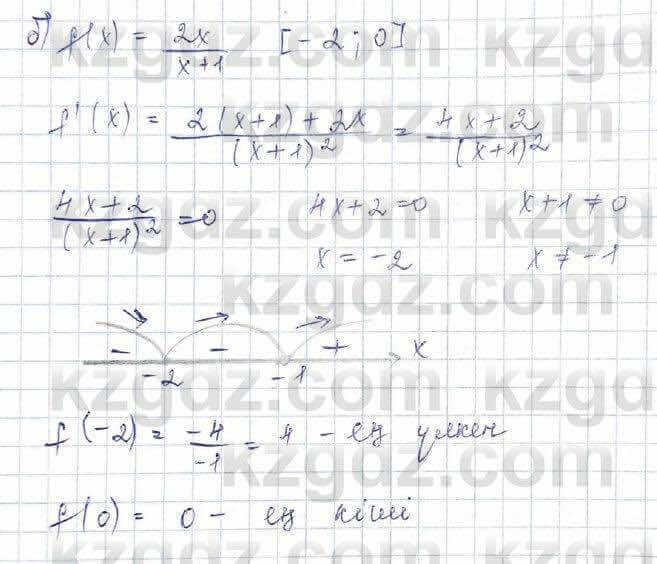 б) f(x) = 2x/(x+1) [-2; 0]
f'(x) = (2(x+1)+2x)/(x+1)² = (4x+2)/(x+1)²
(4x+2)/(x+1)² = 0 4x+2=0 x+1≠0
x = -2 x ≠ -1
- - + x
-2 -1
f(-2) = -4/-1 = 4 - ең үлкен
f(0) = 0 - ең кіші
kzgdz.com